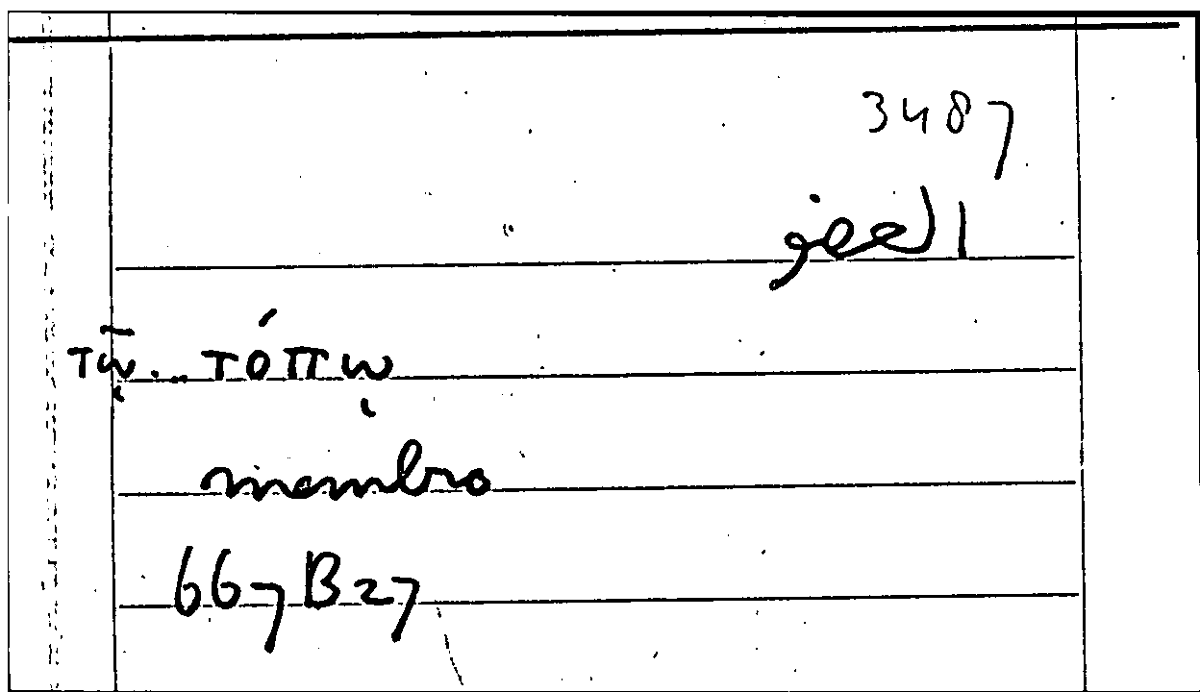 3487
τῷ... τόπῳ
membro
667B27